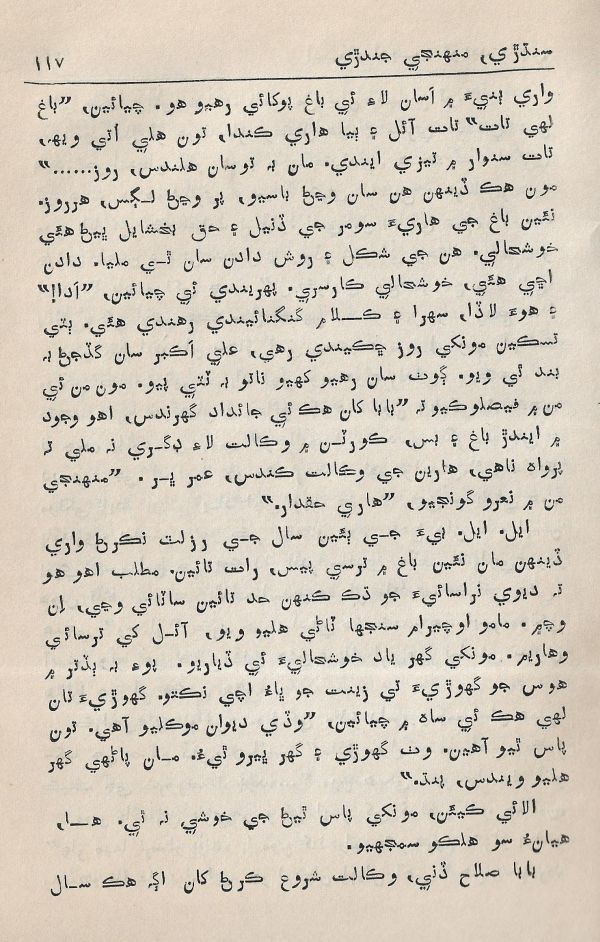 سنڌڙي، منهنجي جندڙي ١١٧
واري ٻنيءَ ۾ اَسان لاءِ ئي باغ پوکائي رهيو هو. چيائين، ”باغ
لهي تات“ تات آئل ۽ ٻيا هاري ڪندا، تون هلي اُتي ويهہ،
تات سنوار ۾ تيزي ايندي. مان بہ توسان هلندس، روز......“
مون هڪ ڏينهن هن سان وڃڻ باسيو، پر وڃڻ لڳس، هرروز.
نئين باغ جي هاريءَ سومر جي ڏنيل ۽ حق بخشايل ڀيڻ هئي
خوشحالي. هن جي شڪل ۽ روش دادن سان ٿي مليا. دادن
اچي هئي، خوشحالي ڪارسري. پهريندي ئي چيائين، ”اَدا!“
۽ هوءَ لاڏا، سهرا ۽ ڪلام گنگنائيندي رهندي هئي. ٻني
تسڪين مونکي روز ڇڪيندي رهي، علي اَڪبر سان گڏجڻ بہ
بند ٿي ويو. ڳوٺ سان رهيو کهيو ناتو بہ ٽٽي پيو. مون من ئي
من ۾ فيصلو ڪيو تہ ”بابا کان هڪ ئي جائداد گهرندس، اهو وجود
۾ ايندڙ باغ ۽ بس، ڪورٽن ۾ وڪالت لاءِ ڊگري نہ ملي تہ
پرواه ناهي، هارين جي وڪالت ڪندس، عمر ڀر. ”منهنجي
من ۾ نعرو گونجيو، ”هاري حقدار.“
ايل. ايل. بيءَ جي ٻئين سال جي رزلٽ نڪرڻ واري
ڏينهن مان نئين باغ ۾ ترسي پيس، رات تائين. مطلب اهو هو
تہ ديوي نراسائيءَ جو ڌڪ ڪنهن حد تائين ساٽائي وڃي، اِن
وچ ۾. مامو اوچيرام سنجها ٽاڻي هليو ويو، آئل کي ترسائي
وهاريم. مونکي گهر ياد خوشحاليءَ ئي ڏياريو. پوءِ بہ ٻڏتر ۾
هوس جو گهوڙيءَ تي زينت جو ڀاءُ اچي نڪتو. گهوڙيءَ تان
لهي هڪ ئي ساه ۾ چيائين، ”وڏي ديوان موڪليو آهي. تون
پاس ٿيو آهين. وٺ گهوڙي ۽ گهر ڀيرو ٿيءُ. مان پاڻهي گهر
هليو ويندس، پنڌ.“
الائي ڪيئن، مونکي پاس ٿيڻ جي خوشي نہ ٿي. ها،
هيانءُ سو هلڪو سمجهيو.
بابا صلاح ڏني، وڪالت شروع ڪرڻ کان اڳہ هڪ سال